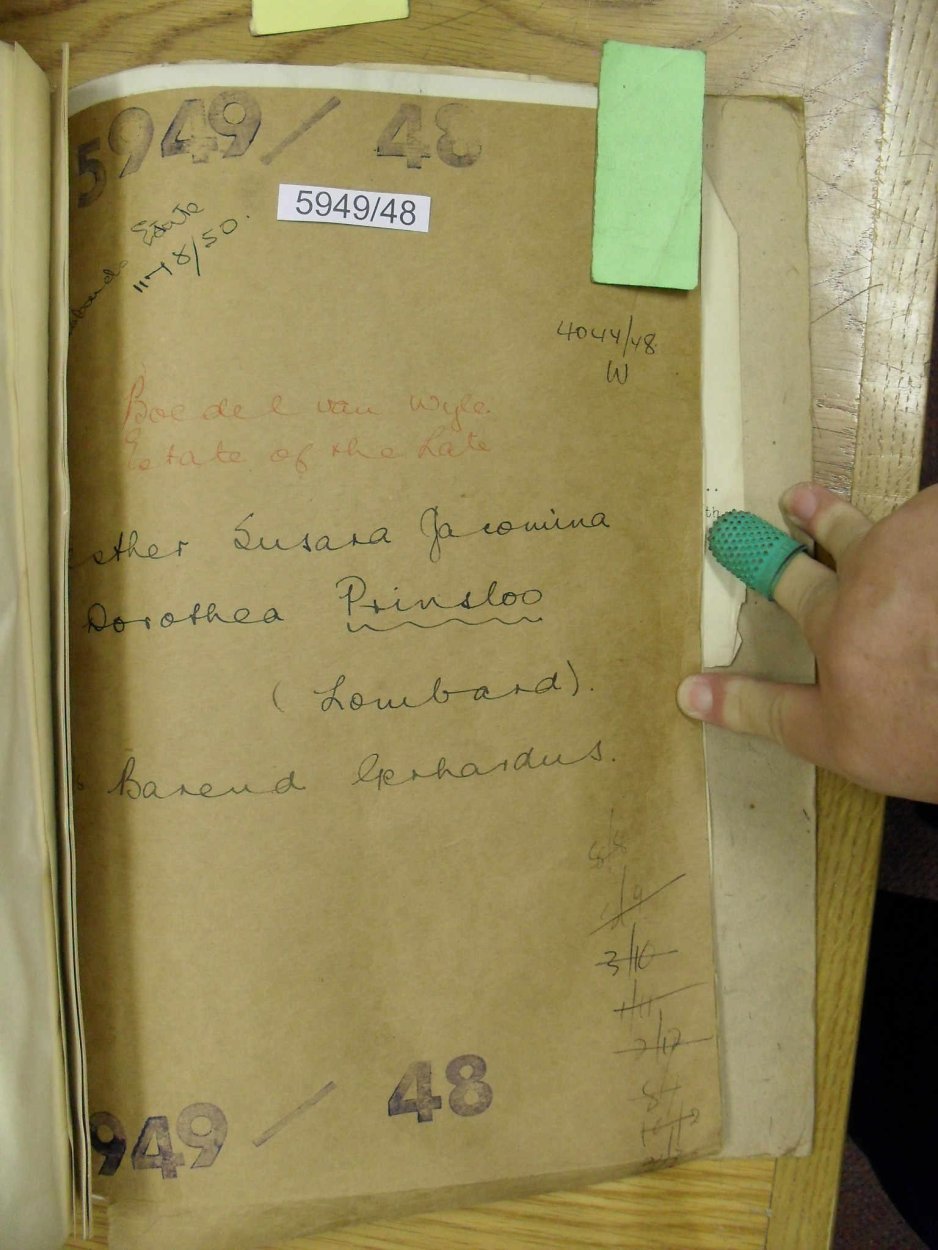 5949/48
5949/48
Estate
117 8/50.
4044/48
W
Boedel van Wyle
Estate of the Late
esther Susara Jacomina
Dorothea Prinsloo
(Lombard).
Barend Gerhardus.
8/8
3/10
1/11
7/12
949/48